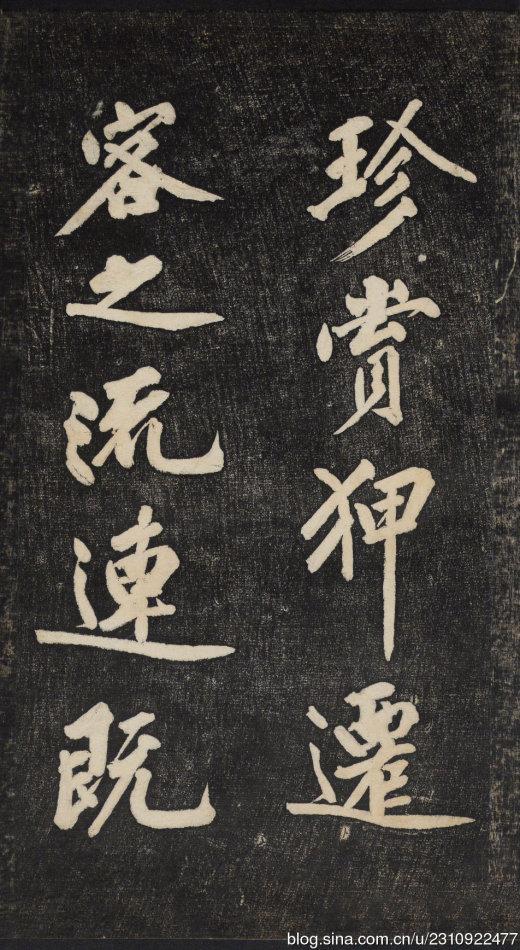 珍賞狎遷
客之流連既
blog.sina.com.cn/u/2310922477